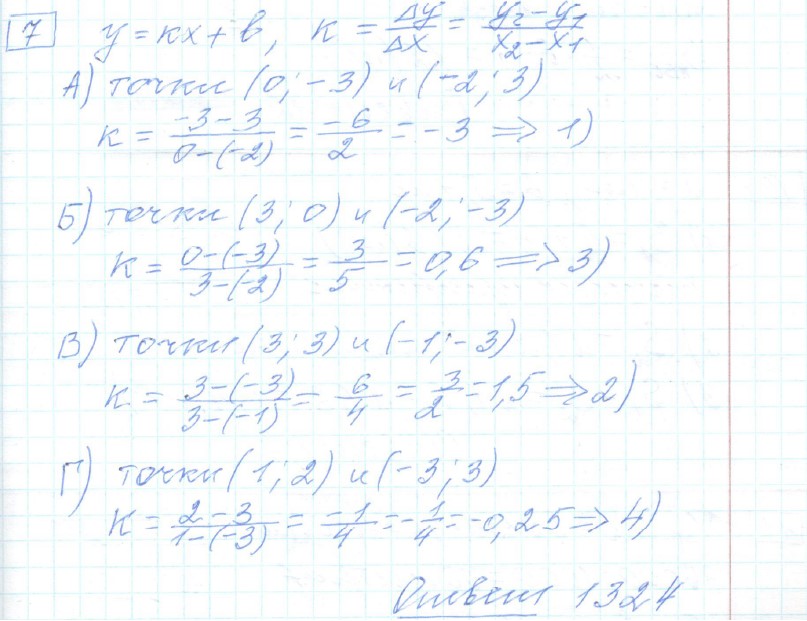 7 y = kx + b, k = Δy/Δx = (y₂ - y₁)/(x₂ - x₁)
А) точки (0; -3) и (-2; 3)
k = (-3 - 3)/(0 - (-2)) = -6/2 = -3 ⇒ 1)
Б) точки (3; 0) и (-2; -3)
k = (0 - (-3))/(3 - (-2)) = 3/5 = 0,6 ⇒ 3)
В) точки (3; 3) и (-1; -3)
k = (3 - (-3))/(3 - (-1)) = 6/4 = 3/2 = 1,5 ⇒ 2)
Г) точки (1; 2) и (-3; 3)
k = (2 - 3)/(1 - (-3)) = -1/4 = -1/4 = -0,25 ⇒ 4)
Ответ 1324